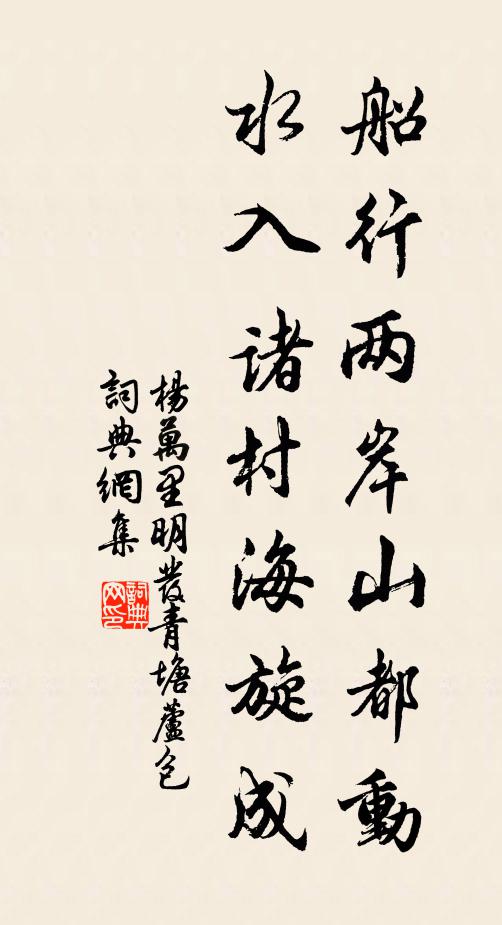 船行两岸山都動
水入诸村海旋成
楊萬里明發青塘蘆包
詞典網集
詞典网印